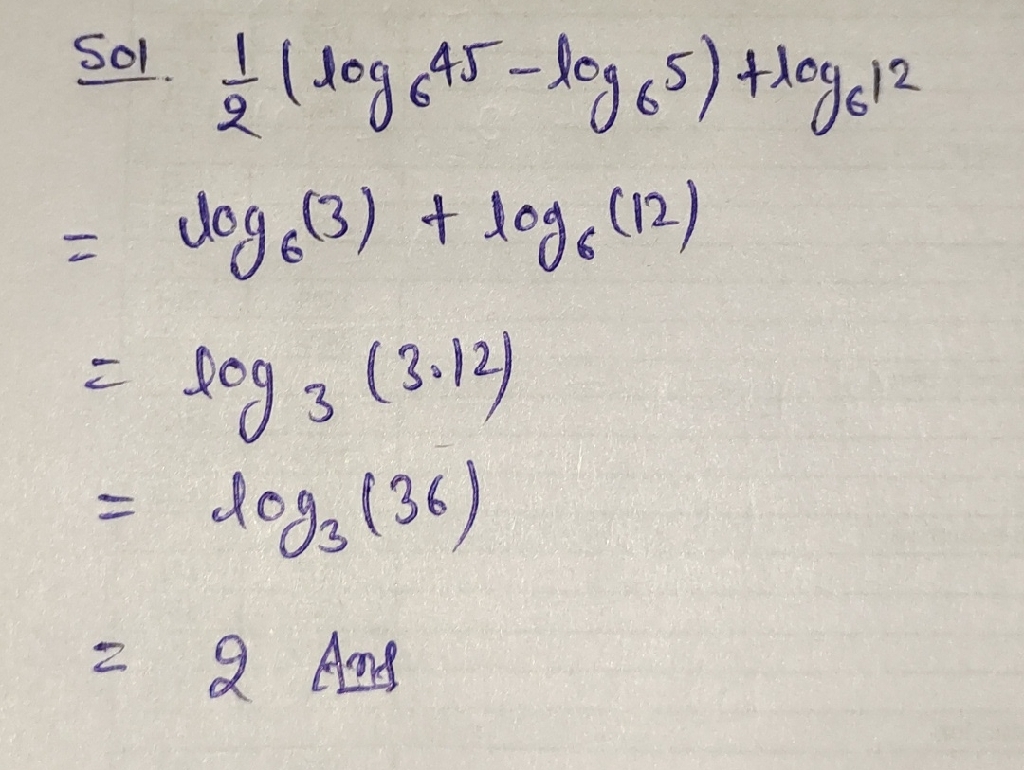 Sol. 1/2 (log₆45 - log₆5) + log₆12
= log₆(3) + log₆(12)
= log₃ (3.12)
= log₃ (36)
= 2 Ans